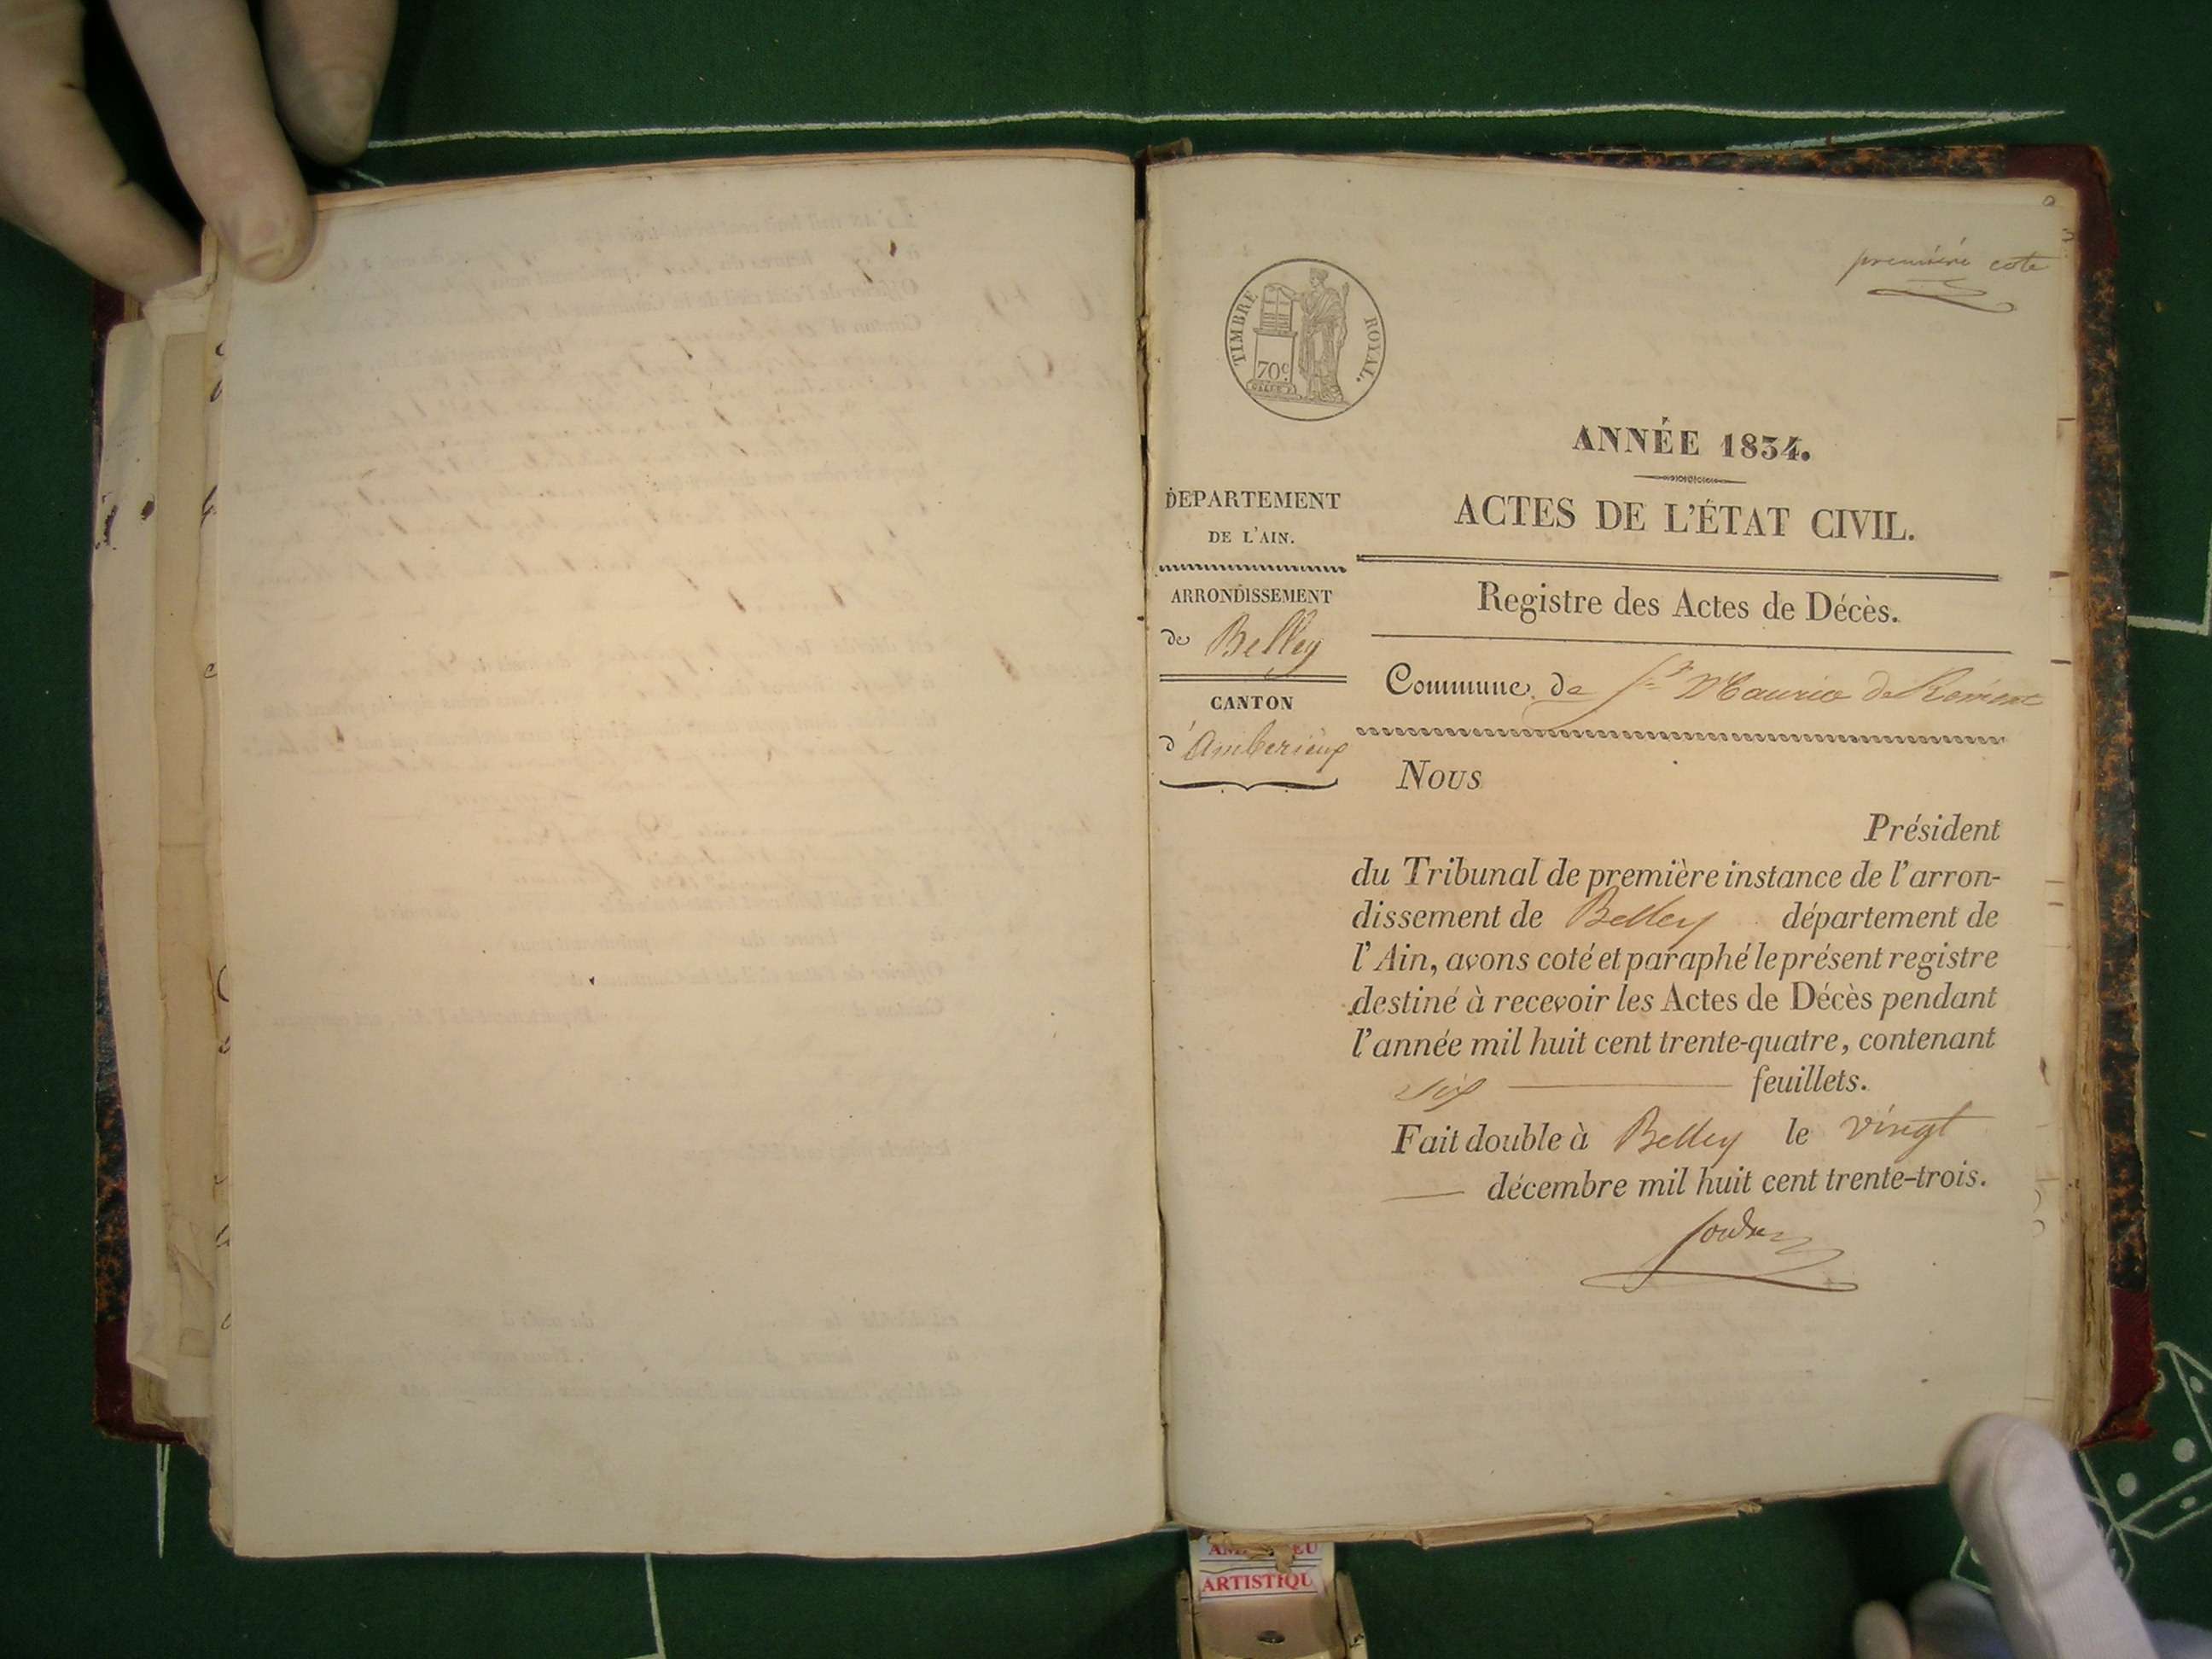 premiéré cote
TIMBRE ROYAL.
70c.
ANNÉE 1834.
DEPARTEMENT
DE L'AIN.
ACTES DE L'ÉTAT CIVIL.
ARRONDISSEMENT
de Belley
Registre des Actes de Décès.
CANTON
d'Amberieux
Commune de St Maurice de Remens
Nous
Président
du Tribunal de première instance de l'arron-
dissement de Belley département de
l'Ain, avons coté et paraphé le présent registre
destiné à recevoir les Actes de Décès pendant
l'année mil huit cent trente-quatre, contenant
six feuillets.
Fait double à Belley le vingt
décembre mil huit cent trente-trois.
ARTISTIQU